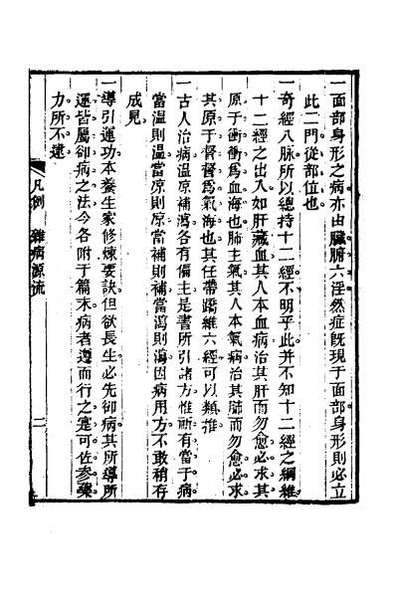 一面部身形之病亦由臟腑六淫然症旣現于面部身形則必立
此二門從部位也
一奇經八脉所以總持十二經不明乎此并不知十二經之綱維
十二經之出入如肝藏血其人本血病治其肝而勿愈必求其
原于衝衝爲血海也肺主氣其人本氣病治其肺而勿愈必求
其原于督督爲氣海也其任帶蹻維六經可以類推
一古人治病溫凉補瀉各有偏主是書所引諸方惟所有當于病
當溫則温當凉則凉當補則補當瀉則瀉因病用方不敢稍存
成見
一導引運功本養生家修煉要訣但欲長生必先却病其所導所
運皆屬却病之法今各附于篇末病者遵而行之寔可佐參藥
力所不逮
凡例 雜病源流 二